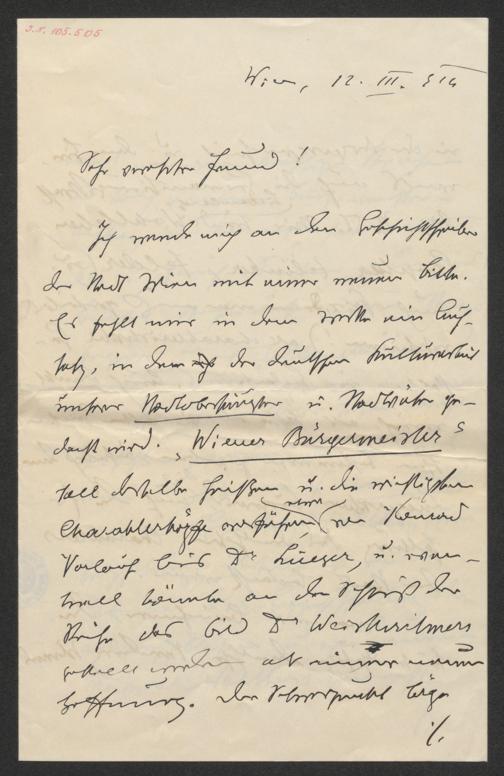 J.N. 105.505
Wien, 12. III. 914
Sehr verehrter Freund!
Ich wende mich an den Geschichtschreiber
der Stadt Wien mit einer neuen Bitte.
Es fehlt mir in dem Werke ein Auf-
satz, in dem der deutschen Kulturarbeit
unserer Stadtoberhäupter u. Stadtväter ge-
dacht wird. „Wiener Bürgermeister“
soll derselbe heißen u. die wichtigsten
Charakterköpfe etwa vorführen von Konrad
Vorlauf bis Dr Lueger, u. even-
tuell könnte an den Schluß der
Reihe das Bild Dr Weiskirchners
gestellt werden als einer neuen
Hoffnung. Der Schwerpunkt läge
./.